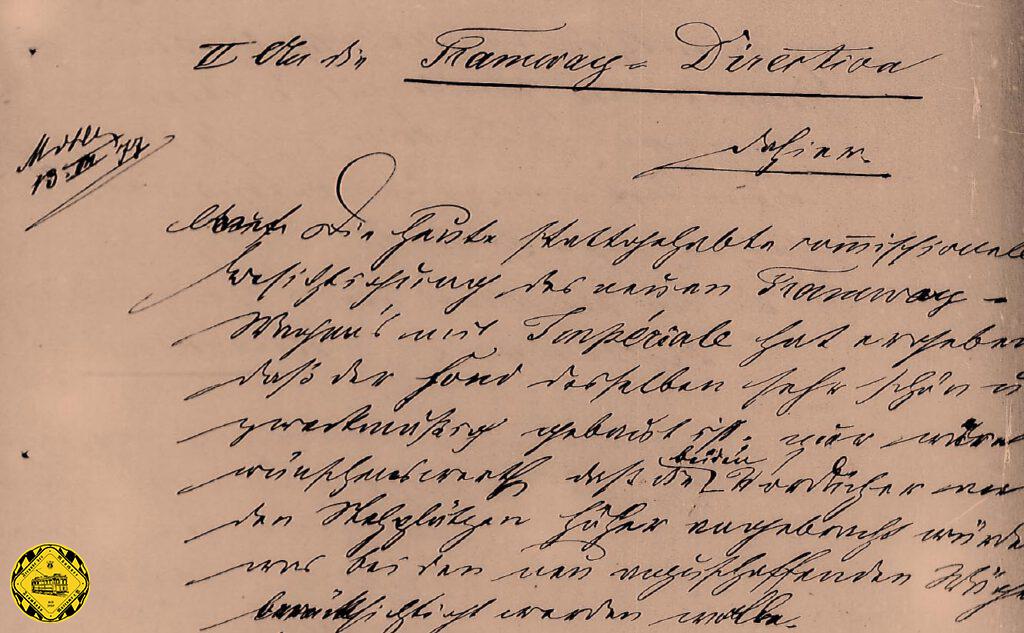 II An die Tramway-Direction
dahier.
13. III 77
Die heute stattgehabte commissionele
Besichtigung des neuen Tramway-
Wagens mit Impériale hat ergeben
daß der Fond desselben sehr schön u
zweckmäßig gebaut ist. nur wäre
wünschenswerth daß die beiden Vordächer an
den Stehplätzen höher angebracht würde
was bei den neu anzuschaffenden Wäge
berücksichtigt werden wolle.